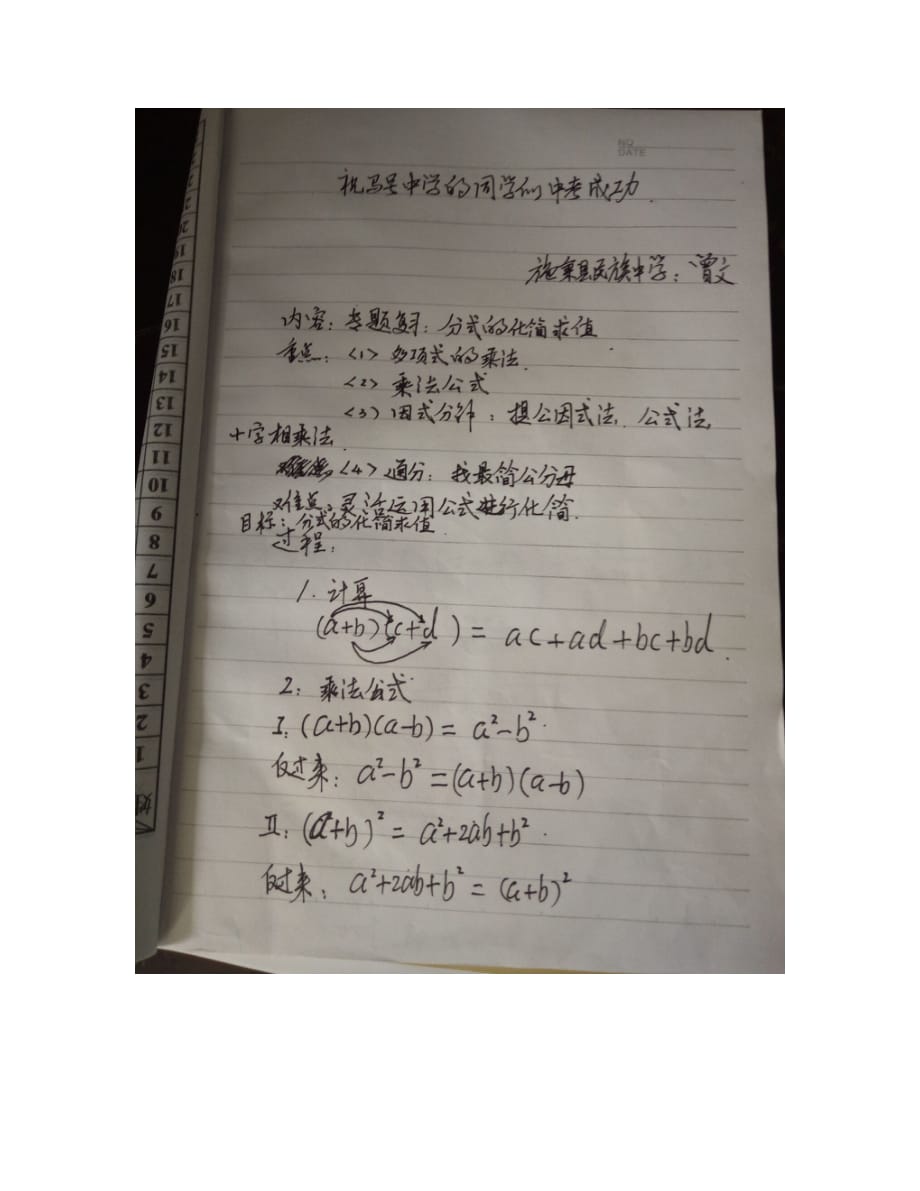 NO
DATE
祝马号中学的同学们中考成功.
施秉县民族中学：曾文
内容：专题复习：分式的化简求值
重点：<1> 多项式的乘法.
<2> 乘法公式
<3> 因式分解：提公因式法. 公式法,
十字相乘法.
<4> 通分：找最简公分母
难点：灵活运用公式进行化简.
目标：分式的化简求值.
过程：
1. 计算
(a+b)(c+d) = ac+ad+bc+bd.
2：乘法公式
I：(a+b)(a-b) = a²-b².
反过来：a²-b² =(a+b)(a-b)
II：(a+b)² = a²+2ab+b².
反过来：a²+2ab+b² = (a+b)²
20
19
18
17
16
15
14
13
12
11
10
9
8
7
6
5
4
3
2
1
姓